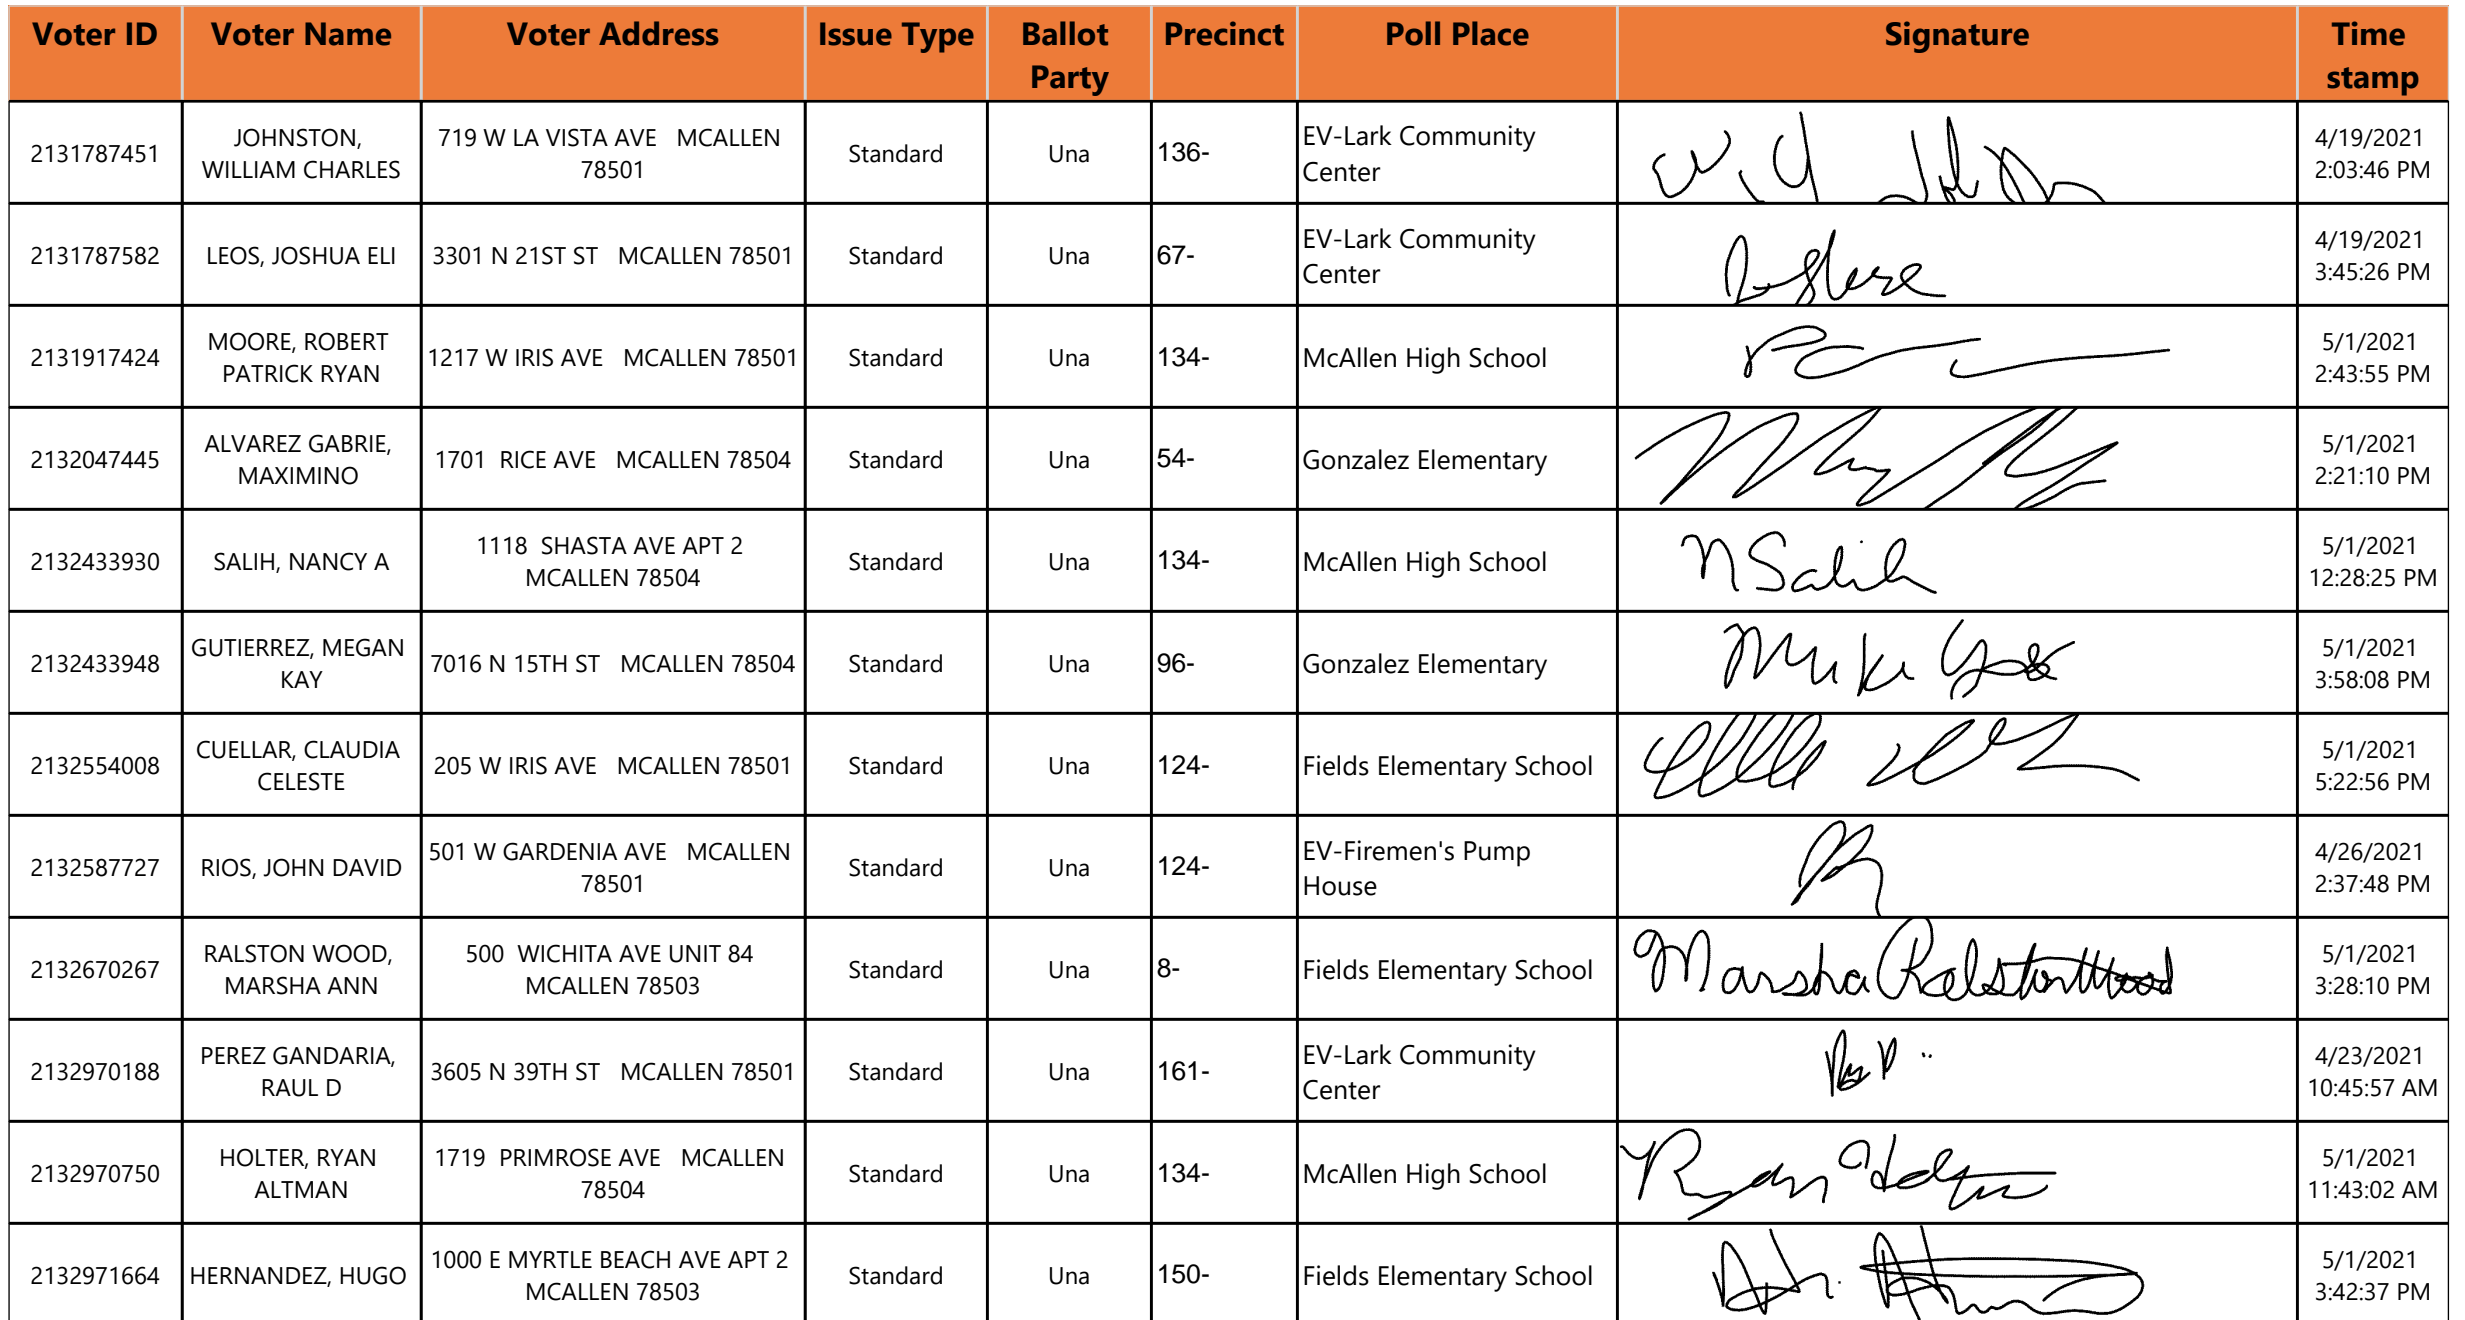 Voter ID Voter Name Voter Address Issue Type Ballot Party Precinct Poll Place Signature Time stamp
2131787451 JOHNSTON, WILLIAM CHARLES 719 W LA VISTA AVE MCALLEN 78501 Standard Una 136- EV-Lark Community Center 4/19/2021 2:03:46 PM
2131787582 LEOS, JOSHUA ELI 3301 N 21ST ST MCALLEN 78501 Standard Una 67- EV-Lark Community Center 4/19/2021 3:45:26 PM
2131917424 MOORE, ROBERT PATRICK RYAN 1217 W IRIS AVE MCALLEN 78501 Standard Una 134- McAllen High School 5/1/2021 2:43:55 PM
2132047445 ALVAREZ GABRIE, MAXIMINO 1701 RICE AVE MCALLEN 78504 Standard Una 54- Gonzalez Elementary 5/1/2021 2:21:10 PM
2132433930 SALIH, NANCY A 1118 SHASTA AVE APT 2 MCALLEN 78504 Standard Una 134- McAllen High School N Salih 5/1/2021 12:28:25 PM
2132433948 GUTIERREZ, MEGAN KAY 7016 N 15TH ST MCALLEN 78504 Standard Una 96- Gonzalez Elementary 5/1/2021 3:58:08 PM
2132554008 CUELLAR, CLAUDIA CELESTE 205 W IRIS AVE MCALLEN 78501 Standard Una 124- Fields Elementary School 5/1/2021 5:22:56 PM
2132587727 RIOS, JOHN DAVID 501 W GARDENIA AVE MCALLEN 78501 Standard Una 124- EV-Firemen's Pump House 4/26/2021 2:37:48 PM
2132670267 RALSTON WOOD, MARSHA ANN 500 WICHITA AVE UNIT 84 MCALLEN 78503 Standard Una 8- Fields Elementary School Marsha Ralston Wood 5/1/2021 3:28:10 PM
2132970188 PEREZ GANDARIA, RAUL D 3605 N 39TH ST MCALLEN 78501 Standard Una 161- EV-Lark Community Center 4/23/2021 10:45:57 AM
2132970750 HOLTER, RYAN ALTMAN 1719 PRIMROSE AVE MCALLEN 78504 Standard Una 134- McAllen High School Ryan 5/1/2021 11:43:02 AM
2132971664 HERNANDEZ, HUGO 1000 E MYRTLE BEACH AVE APT 2 MCALLEN 78503 Standard Una 150- Fields Elementary School 5/1/2021 3:42:37 PM